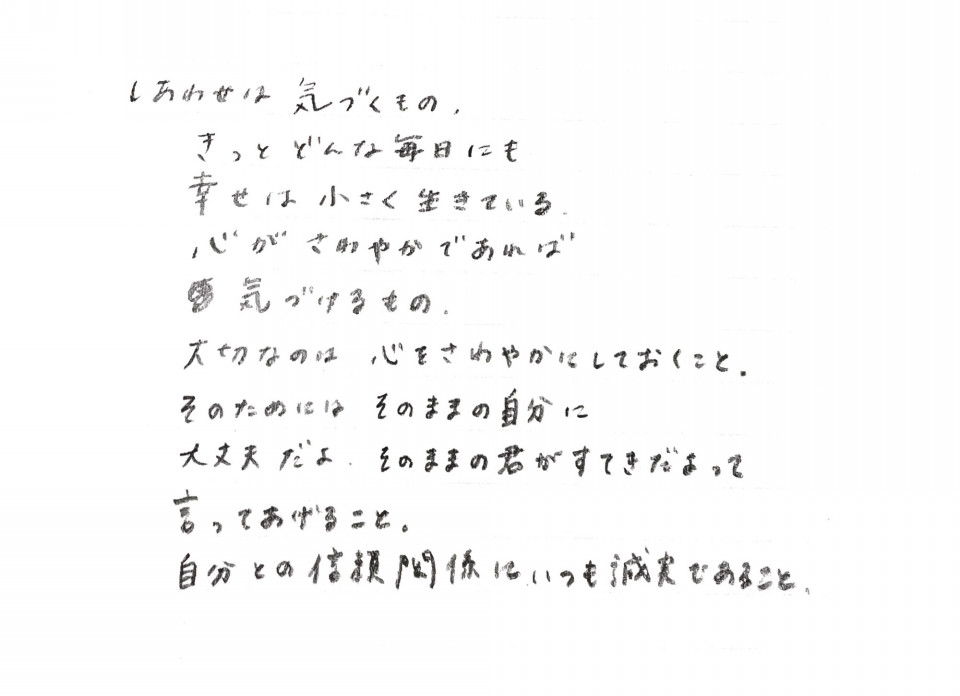 しあわせは 気づくもの.
きっと どんな毎日にも
幸せは 小さく 生きている.
心が さわやかであれば
気づけるもの.
大切なのは 心をさわやかにしておくこと.
そのためには そのままの自分に
大丈夫だよ. そのままの君がすてきだよって
言ってあげること.
自分との信頼関係に いつも誠実であること.